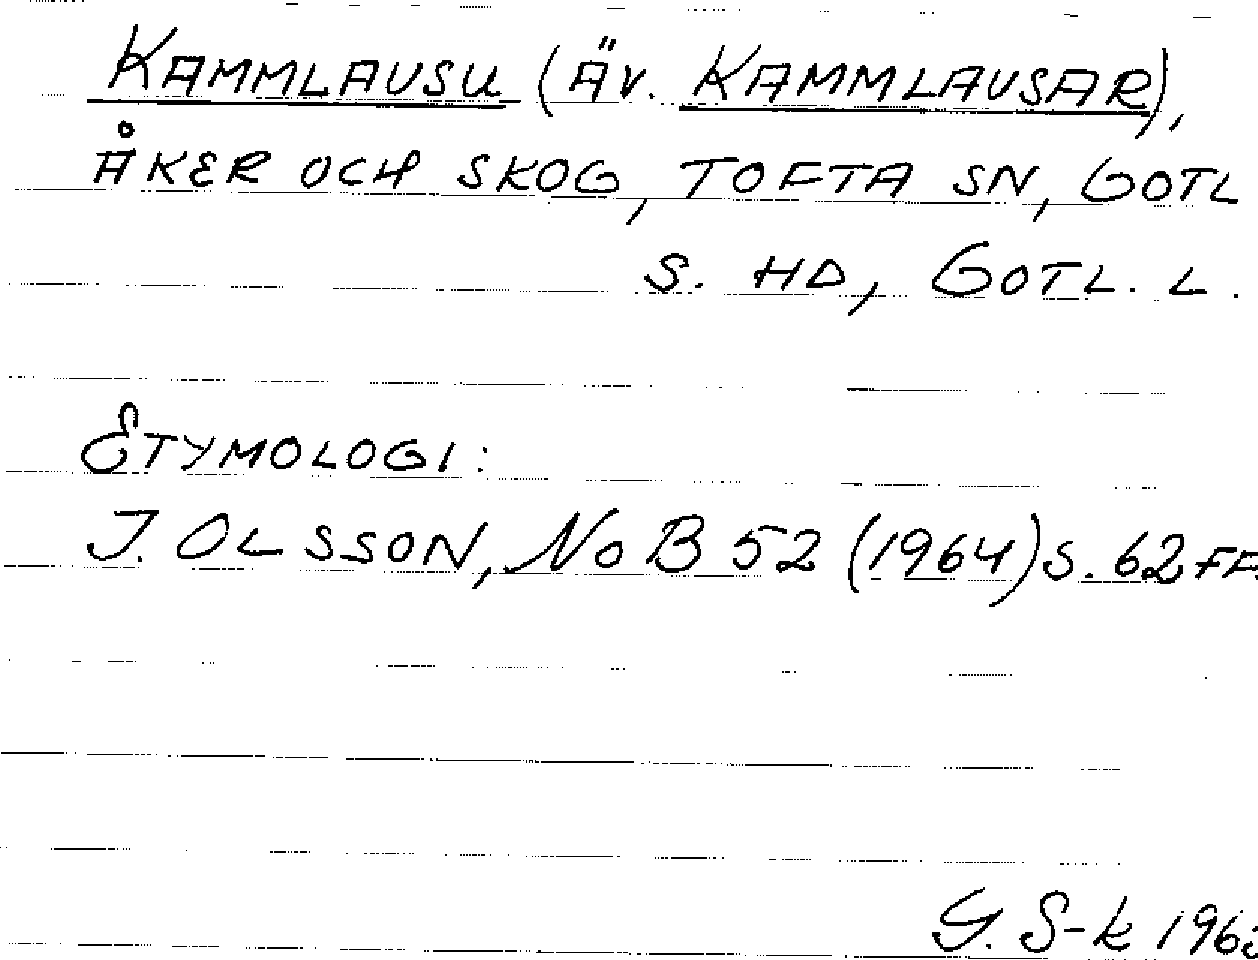 KAMMLAUSU (ÄV. KAMMLAUSAR),
ÅKER OCH SKOG, TOFTA SN, GOTL
S. HD, GOTL. L.
ETYMOLOGI:
I. OLSSON, NoB 52 (1964) S. 62 FF.
G. S-k